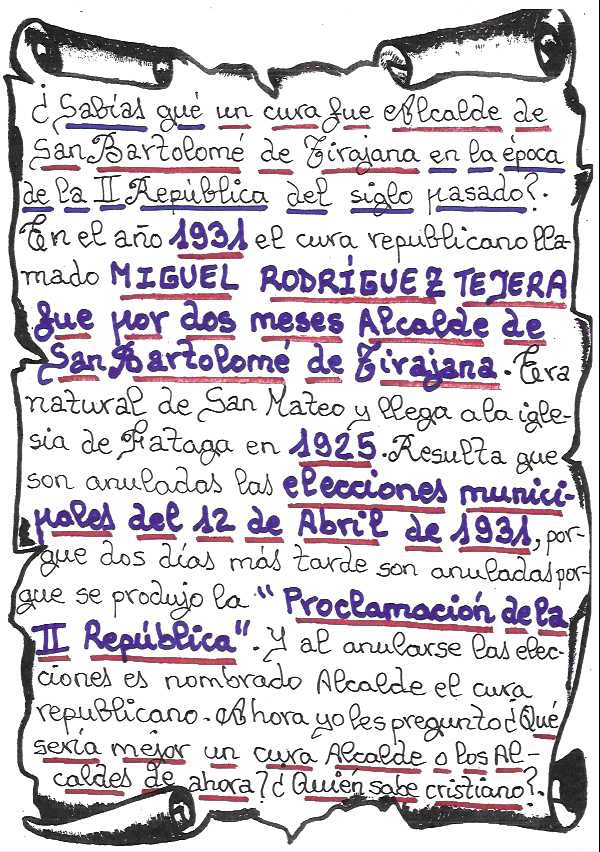 ¿Sabías qué un cura fue Alcalde de
San Bartolomé de Tirajana en la época
de la II República del siglo pasado?.
En el año 1931 el cura republicano lla-
mado MIGUEL RODRÍGUEZ TEJERA
fue por dos meses Alcalde de
San Bartolomé de Tirajana. Era
natural de San Mateo y llega a la igle-
sia de Fataga en 1925. Resulta que
son anuladas las elecciones munici-
pales del 12 de Abril de 1931, por-
que dos días más tarde son anuladas por-
que se produjo la "Proclamación de la
II República". Y al anularse las elec-
ciones es nombrado Alcalde el cura
republicano. Ahora yo les pregunto ¿Qué
sería mejor un cura Alcalde o los Al-
caldes de ahora? ¿Quién sabe cristiano?.